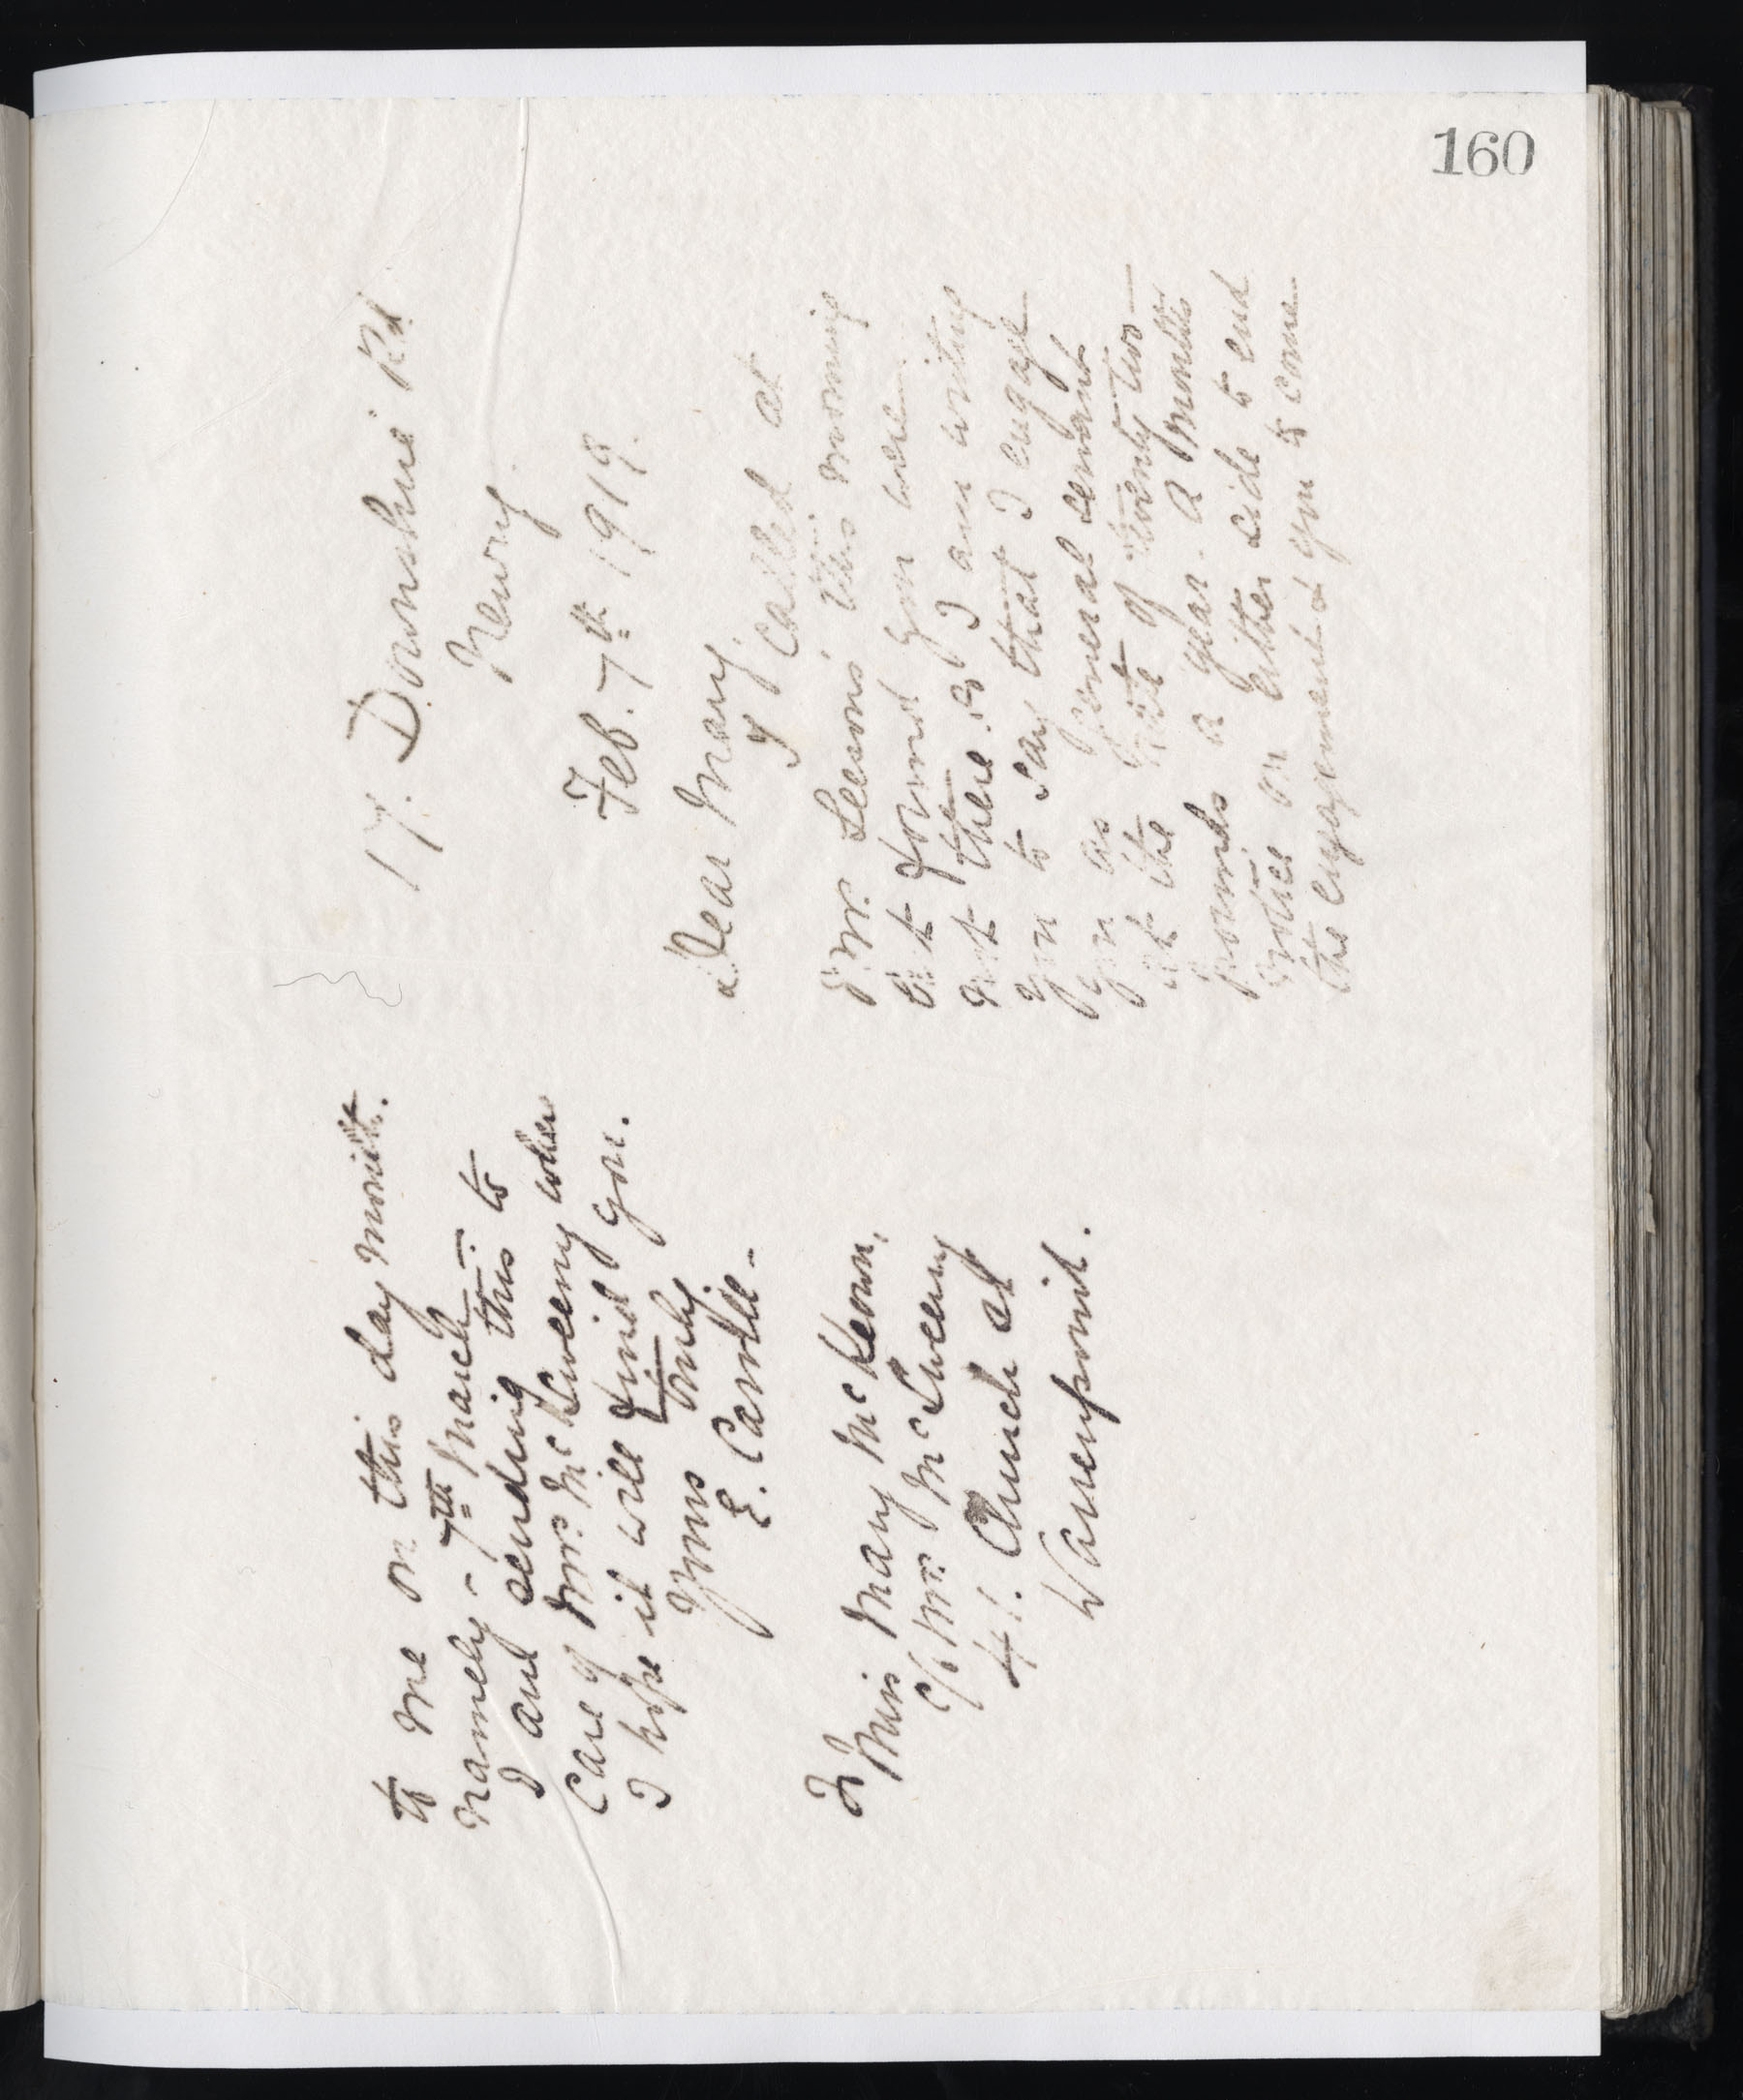 160
17. Downshire Rd
Newry
Feb. 7th 1919.
Dear Mary,
I called at
Mr. Leeson's this morning
but found you were
not there. So I am writing
you to say that I engage
you as general servant
at the rate of twenty two
pounds a year. A month's
notice on either side to end
the engagement & you to come
to me on this day month.
namely - 7th March.
I am sending this to
care of Mrs. McSweeny where
I hope it will find you.
Yours truly
E. Carroll -
To
Miss Mary McKeown,
c/o Mrs. McSweeny
41. Church St
Warrenpoint.